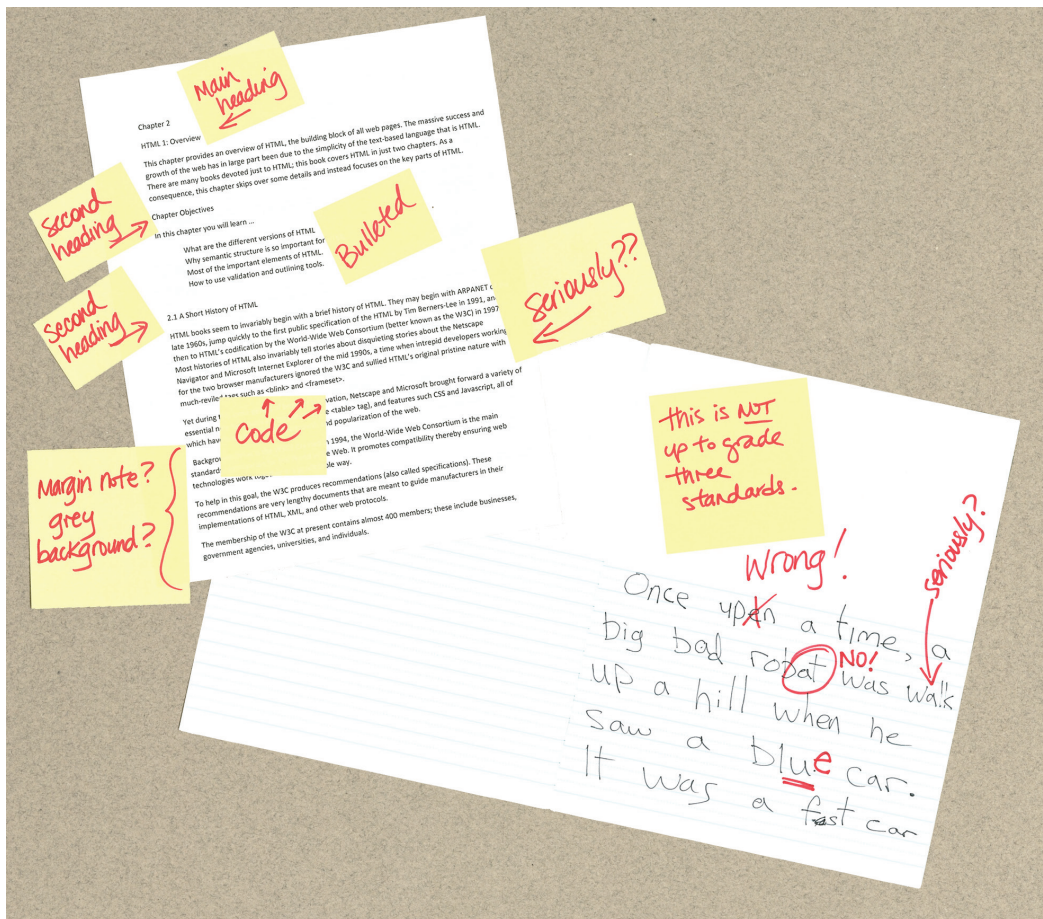 Main
heading
Chapter 2
HTML 1: Overview
This chapter provides an overview of HTML, the building block of all web pages. The massive success and
growth of the web has in large part been due to the simplicity of the text-based language that is HTML.
There are many books devoted just to HTML; this book covers HTML in just two chapters. As a
consequence, this chapter skips over some details and instead focuses on the key parts of HTML.
second
heading
Chapter Objectives
In this chapter you will learn ...
What are the different versions of HTML
Why semantic structure is so important for
Most of the important elements of HTML.
How to use validation and outlining tools.
Bulleted
second
heading
2.1 A Short History of HTML
HTML books seem to invariably begin with a brief history of HTML. They may begin with ARPANET
late 1960s, jump quickly to the first public specification of the HTML by Tim Berners-Lee in 1991, and
then to HTML's codification by the World-Wide Web Consortium (better known as the W3C) in 1997
Most histories of HTML also invariably tell stories about disquieting stories about the Netscape
Navigator and Microsoft Internet Explorer of the mid 1990s, a time when intrepid developers working
for the two browser manufacturers ignored the W3C and sullied HTML's original pristine nature with
much-reviled tags such as <blink> and <frameset>.
seriously??
Yet during Netscape and Microsoft brought forward a variety of
essential <table> tag), and features such as CSS and Javascript, all of
which have popularization of the web.
Code
1994, the World-Wide Web Consortium is the main
standards Web. It promotes compatibility thereby ensuring web
technologies work way.
To help in this goal, the W3C produces recommendations (also called specifications). These
recommendations are very lengthy documents that are meant to guide manufacturers in their
implementations of HTML, XML, and other web protocols.
The membership of the W3C at present contains almost 400 members; these include businesses,
government agencies, universities, and individuals.
Margin note?
grey
background?
this is NOT
up to grade
three
standards.
seriously?
Wrong!
Once upen a time, a
big bad robat NO! was walk
up a hill when he
saw a blue car.
It was a fast car